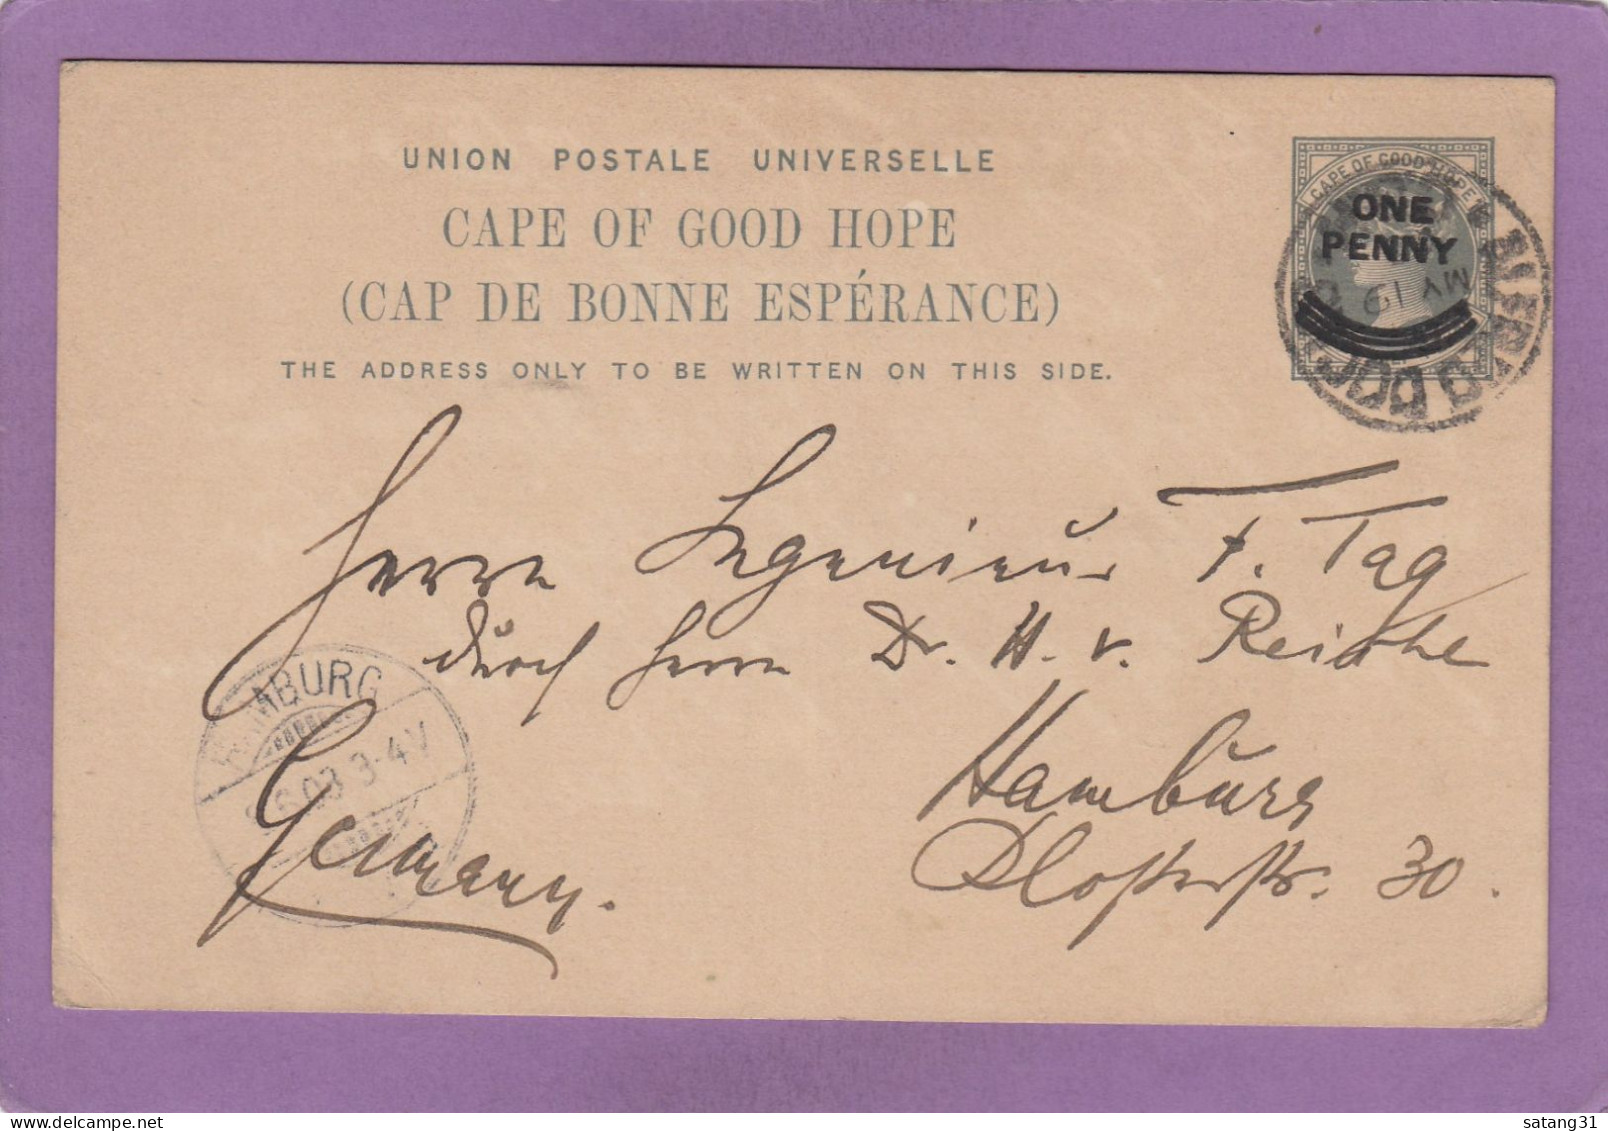 UNION POSTALE UNIVERSELLE
CAPE OF GOOD HOPE
(CAP DE BONNE ESPÉRANCE)
THE ADDRESS ONLY TO BE WRITTEN ON THIS SIDE.
CAPE OF GOOD HOPE
ONE
PENNY
MY 19
Herrn Ingenieur F. Tag
durch Herrn Dr. H. v. Reiche
Hamburg
Klosterstr. 30.
Germany.
HAMBURG
03 3-4V
www.delcampe.net
satang31